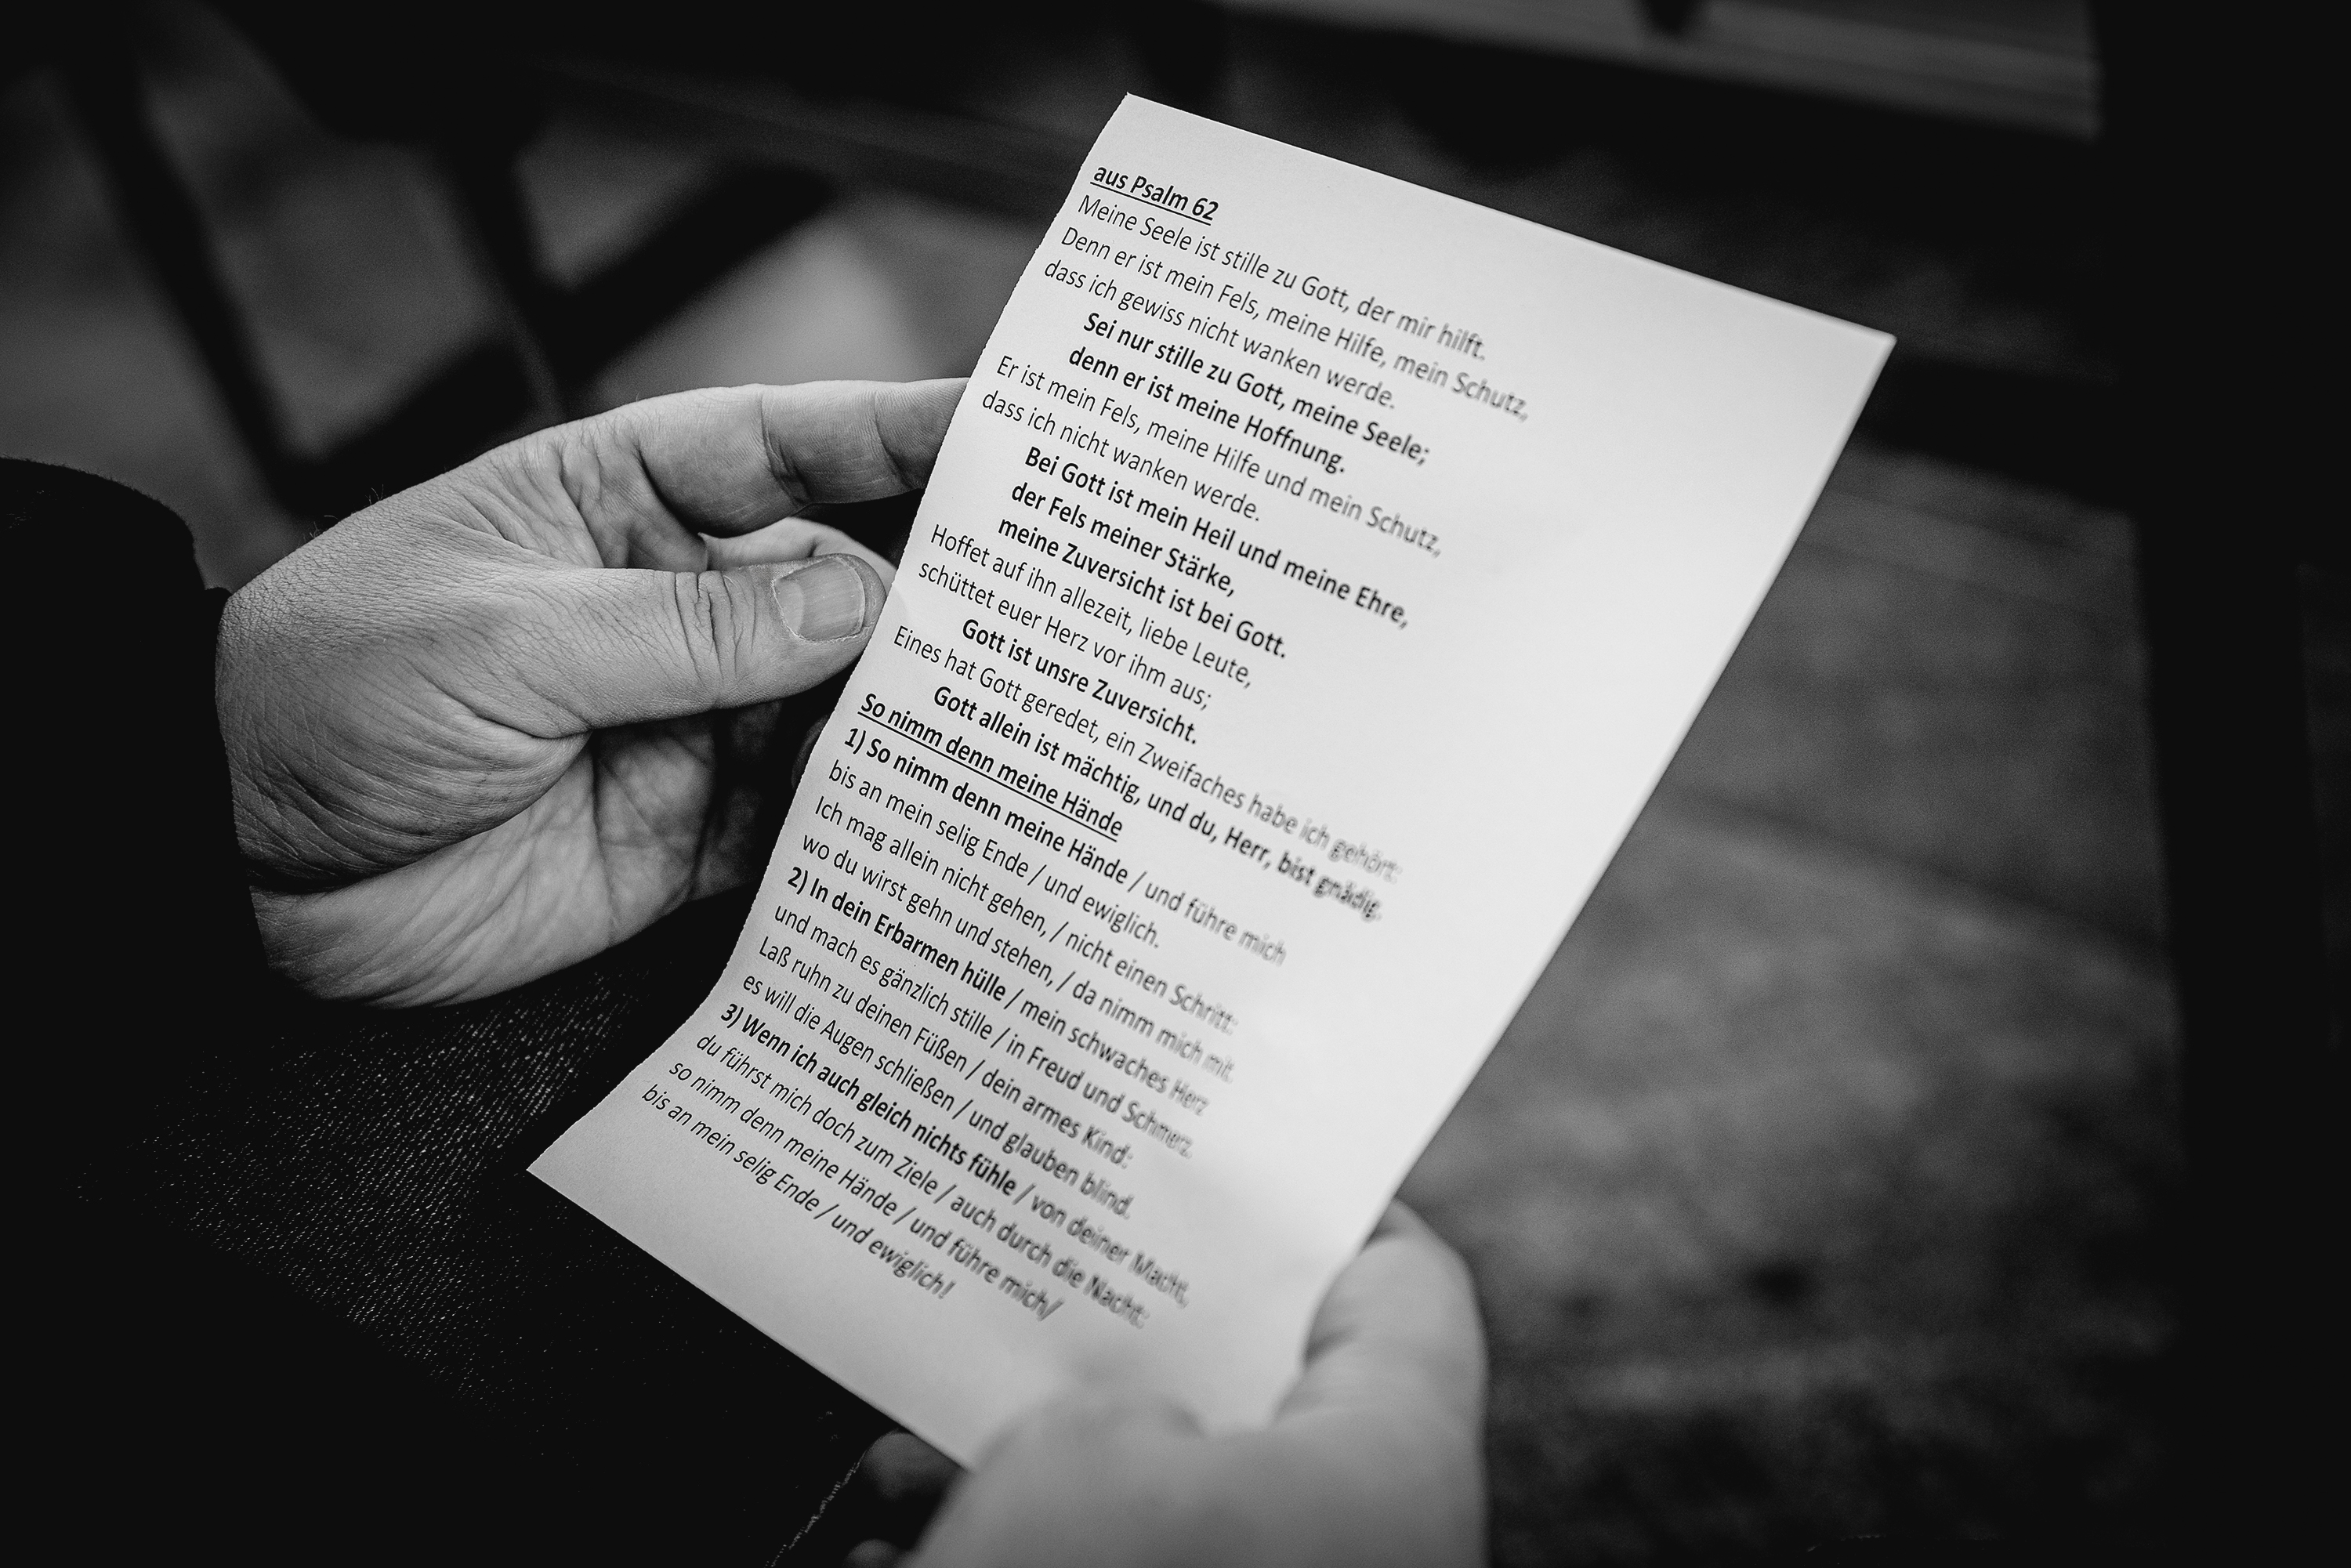 aus Psalm 62
Meine Seele ist stille zu Gott, der mir hilft.
Denn er ist mein Fels, meine Hilfe, mein Schutz,
dass ich gewiss nicht wanken werde.
Sei nur stille zu Gott, meine Seele;
denn er ist meine Hoffnung.
Er ist mein Fels, meine Hilfe und mein Schutz,
dass ich nicht wanken werde.
Bei Gott ist mein Heil und meine Ehre,
der Fels meiner Stärke,
meine Zuversicht ist bei Gott.
Hoffet auf ihn allezeit, liebe Leute,
schüttet euer Herz vor ihm aus;
Gott ist unsre Zuversicht.
Eines hat Gott geredet, ein Zweifaches habe ich gehört:
Gott allein ist mächtig, und du, Herr, bist gnädig.
So nimm denn meine Hände
1) So nimm denn meine Hände / und führe mich
bis an mein selig Ende / und ewiglich.
Ich mag allein nicht gehen, / nicht einen Schritt:
wo du wirst gehn und stehen, / da nimm mich mit.
2) In dein Erbarmen hülle / mein schwaches Herz
und mach es gänzlich stille / in Freud und Schmerz.
Laß ruhn zu deinen Füßen / dein armes Kind:
es will die Augen schließen / und glauben blind.
3) Wenn ich auch gleich nichts fühle / von deiner Macht,
du führst mich doch zum Ziele / auch durch die Nacht:
so nimm denn meine Hände / und führe mich/
bis an mein selig Ende / und ewiglich!